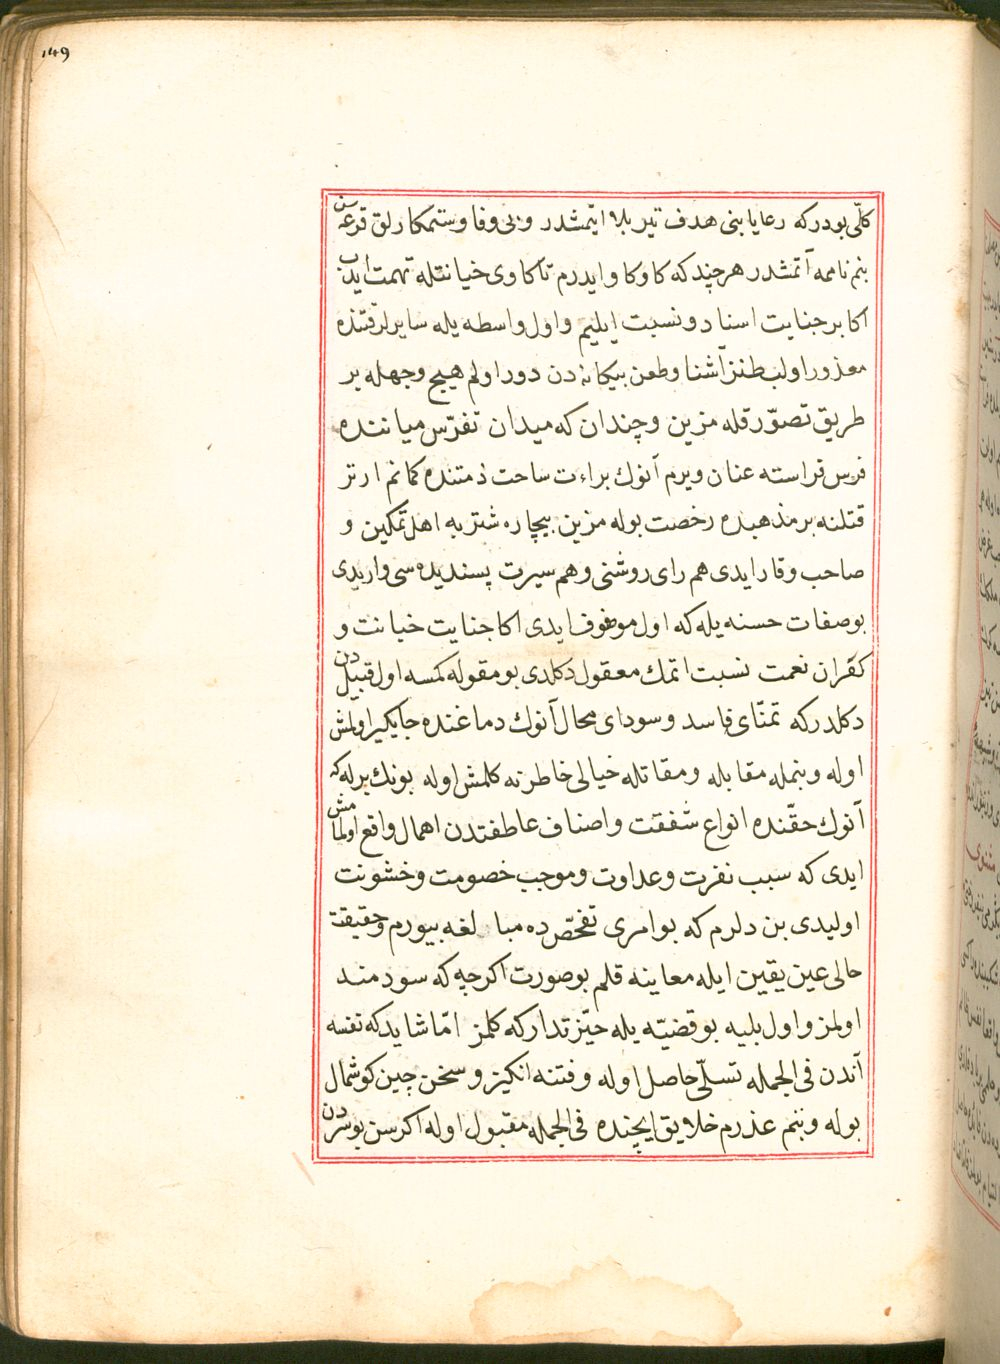 ١٤٩
كلّی بودركه رعایا بنی هدف تیر بلا ایتمشدر و بی وفا و ستمكارلق قرعه سن
بنم نامه آتمشدر هر چند كه كاوكا و ایدرم تا كاوی خیانتله تهمت ایدب
اكا بر جنایت اسناد و نسبت ایلیم و اول واسطه یله سایرلر قتنده
معذور اولب طنز آشنا و طعن بیكانه دن دور اولم هیچ وجهله بر
طریق تصوّر قلەمزین و چندان كه میدان تفرّس میاننده
فرس فراسته عنان ویرم آنوك براءت ساحت ذمتنده كمانم ارتر
قتلنه بر مذهبده رخصت بولەمزین بیچاره شتربه اهل تمكین و
صاحب وقار ایدی هم رای روشنی و هم سیرت پسندیده سی وار یدی
بو صفات حسنه یله كه اول موصوف ایدی اكا جنایت خیانت و
كفران نعمت نسبت اتمك معقول دكلدی بو مقوله كمسه اول قبیلدن
دكلدر كه تمنّای فاسد و سودای محال آنوك دماغنده جایكیر اولمش
اوله و بنمله مقابله و مقاتله خیالی خاطرنه كلمش اوله بونك برله كه
آنوك حقّنده انواع شفقت و اصناف عاطفتدن اهمال واقع اولمامش
ایدی كه سبب نفرت و عداوت و موجب خصومت و خشونت
اولیدی بن دلرم كه بو امری تفحّص ده مبالغه بیورم و حقیقت
حالی عین یقین ایله معاینه قلم بو صورت اكرچه كه سودمند
اولمز و اول بلیه بو قضیّه یله حیّز تداركه كلمز امّا شاید كه نفسه
آندن فی الجمله تسلّی حاصل اوله و فتنه انكیز و سخن چین كوشمال
بوله و بنم عذرم خلایق ایچنده فی الجمله مقبول اوله اكر سن بو سردن